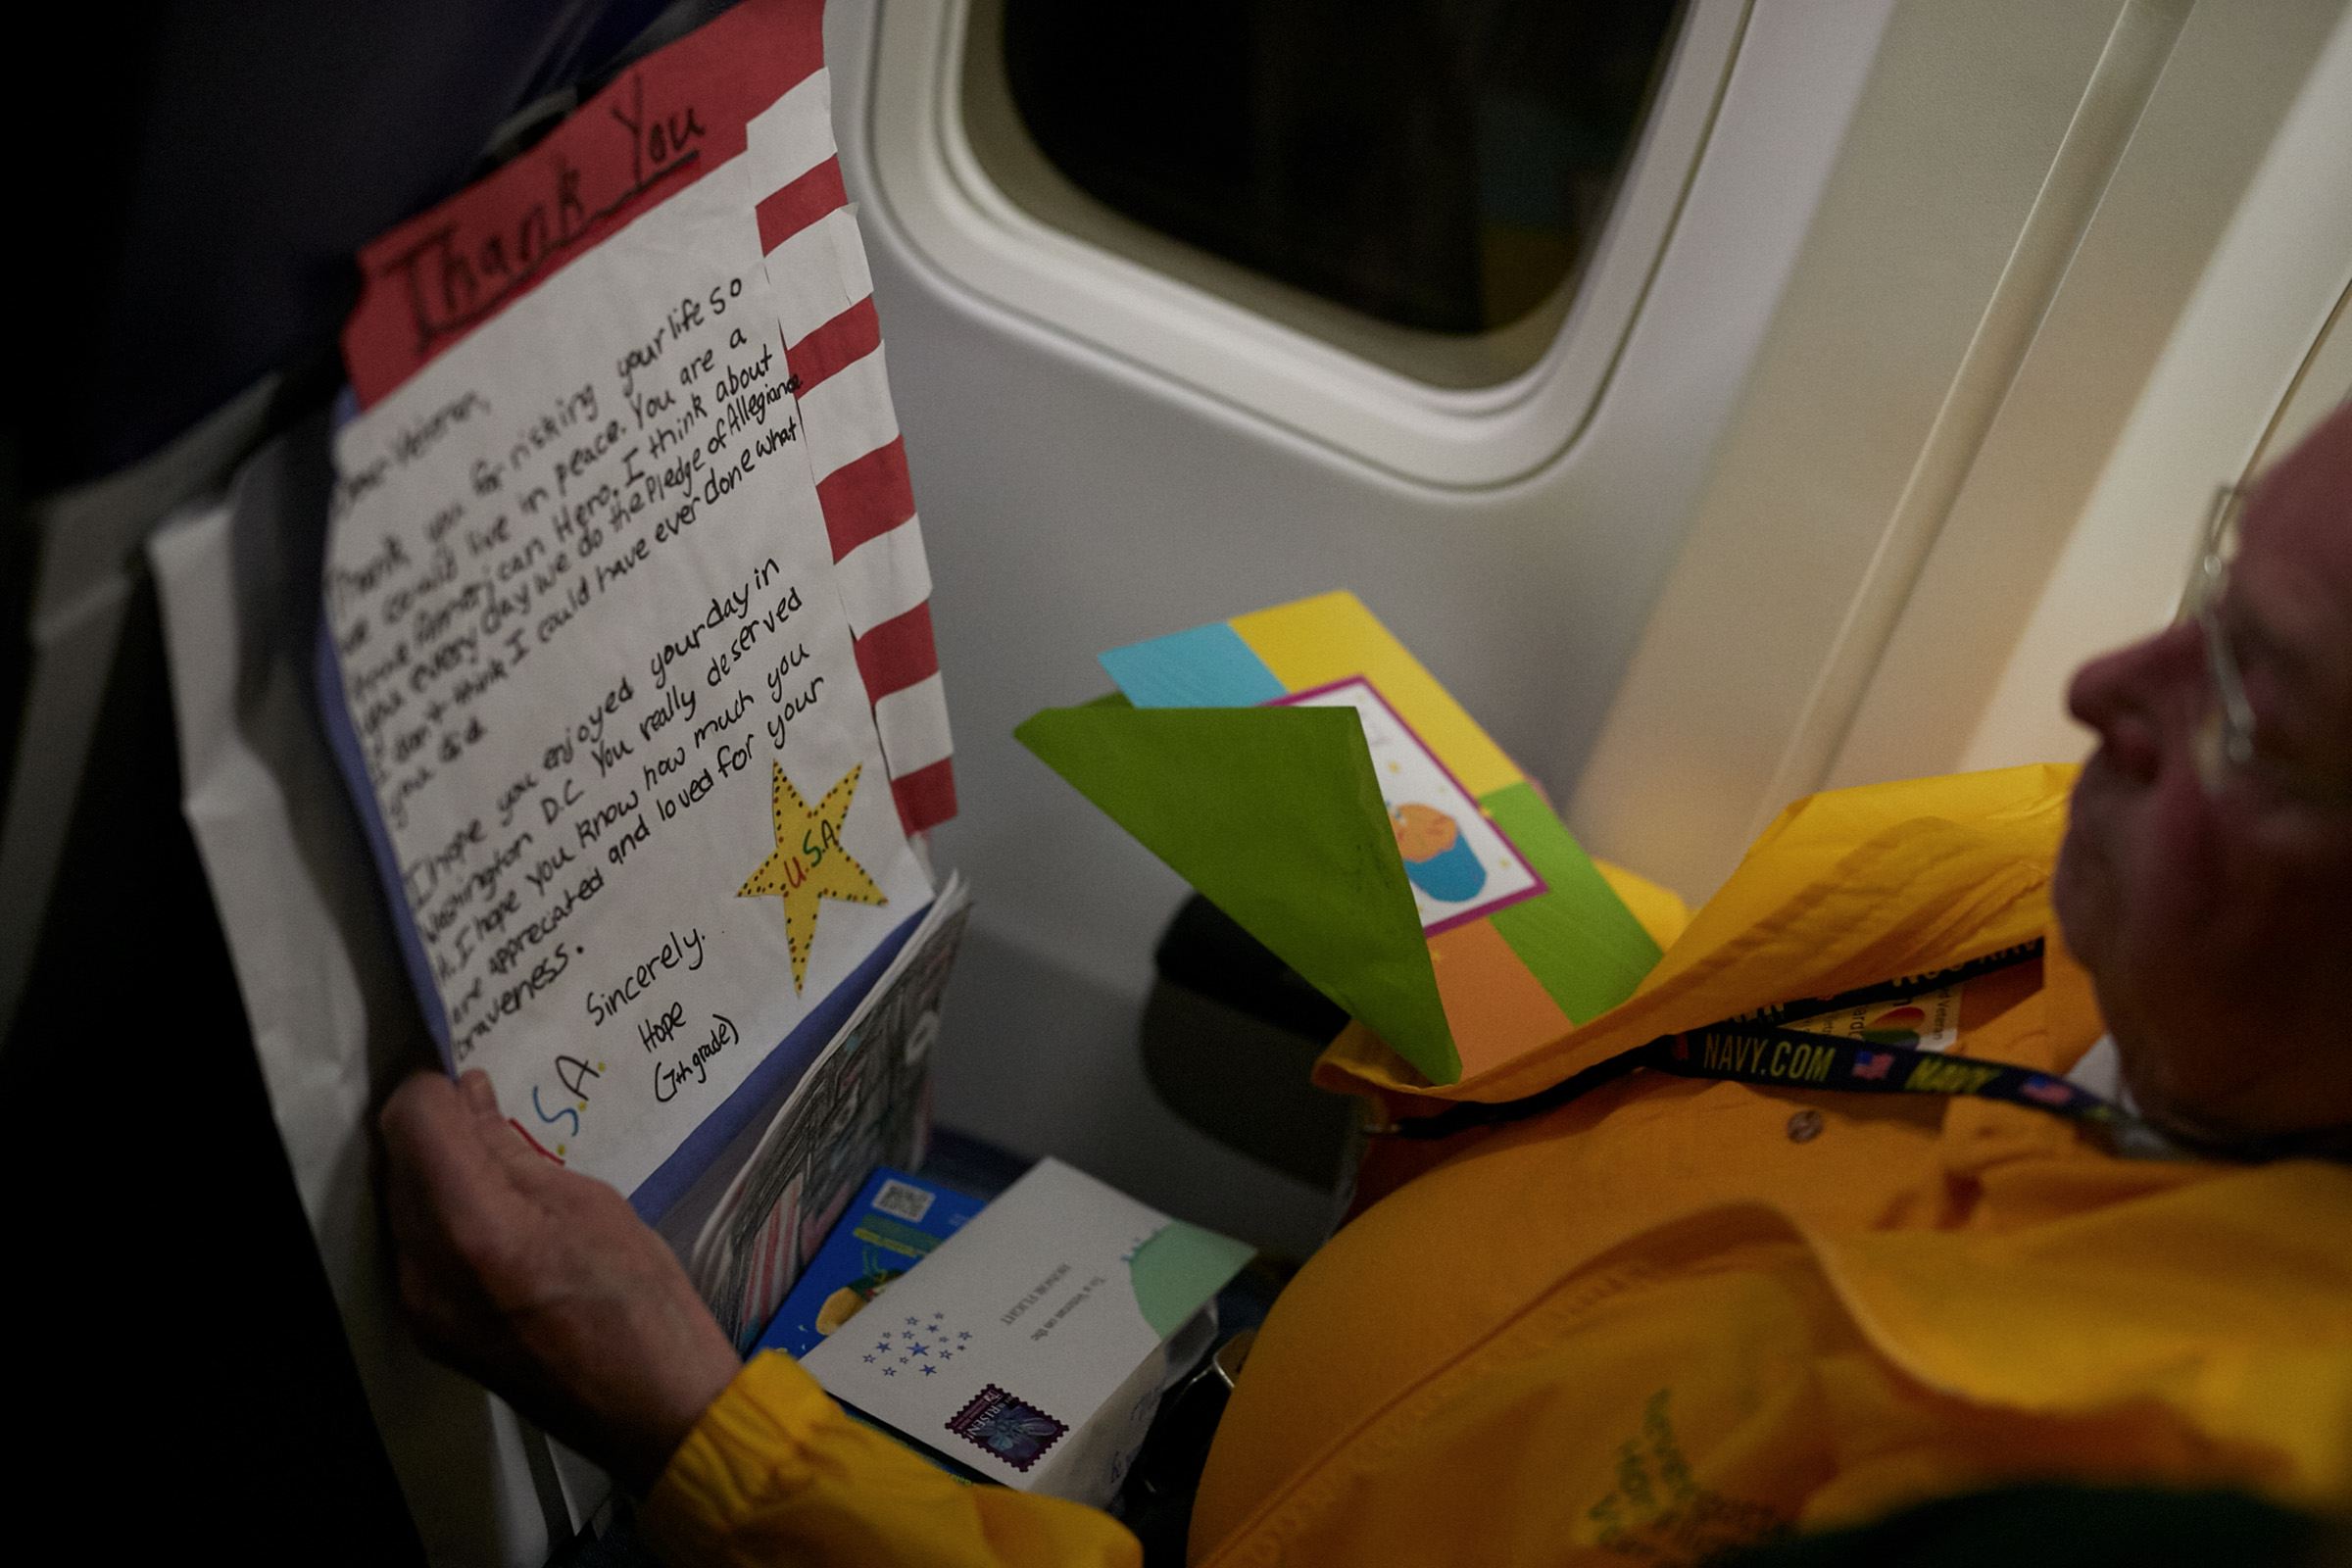 Thank You
Dear Veteran,
Thank you for risking your life so
we could live in peace. You are a
true American Hero. I think about
you every day we do the Pledge of Allegiance
I don't think I could have ever done what
you did
I hope you enjoyed your day in
Washington D.C. You really deserved
it. I hope you know how much you
are appreciated and loved for your
braveness.
Sincerely.
Hope
(7th grade)
U.S.A.
S.A.
NAVY.COM
NAVY
To a Veteran on the
HONOR FLIGHT
RISEN